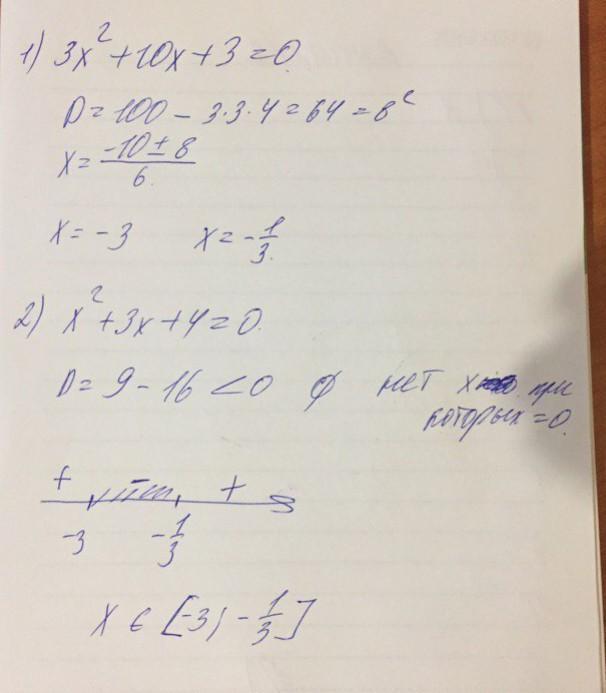 1) 3x² + 10x + 3 = 0.
D = 100 - 3·3·4 = 64 = 8²
x = (-10 ± 8)/6.
x = -3 x = -1/3.
2) x² + 3x + 4 = 0.
D = 9 - 16 < 0 ∅ нет x при
которых = 0.
+ - +
-3 -1/3
x ∈ [-3; -1/3]